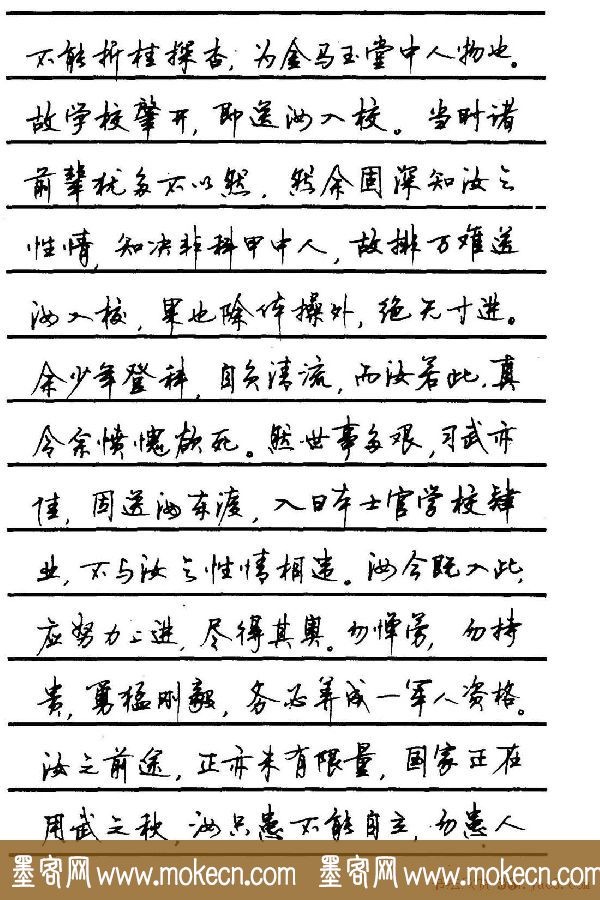 不能折桂探杏，为金马玉堂中人物也。
故学校肇开，即送汝入校。当时诸
前辈犹多不以然，然余固深知汝之
性情，知决非科甲中人，故排万难送
汝入校，果也除体操外，绝无寸进。
余少年登科，自负清流，而汝若此，真
令余愤愧欲死。然世事多艰，习武亦
佳，固送汝东渡，入日本士官学校肄
业，不与汝之性情相违。汝今既入此，
应努力上进，尽得其奥。勿惮劳，勿持
贵，勇猛刚毅，务必养成一军人资格。
汝之前途，正亦未有限量，国家正在
用武之秋，汝只患不能自立，勿患人
墨客网 www.mokecn.com 墨客网 www.mokecn.com